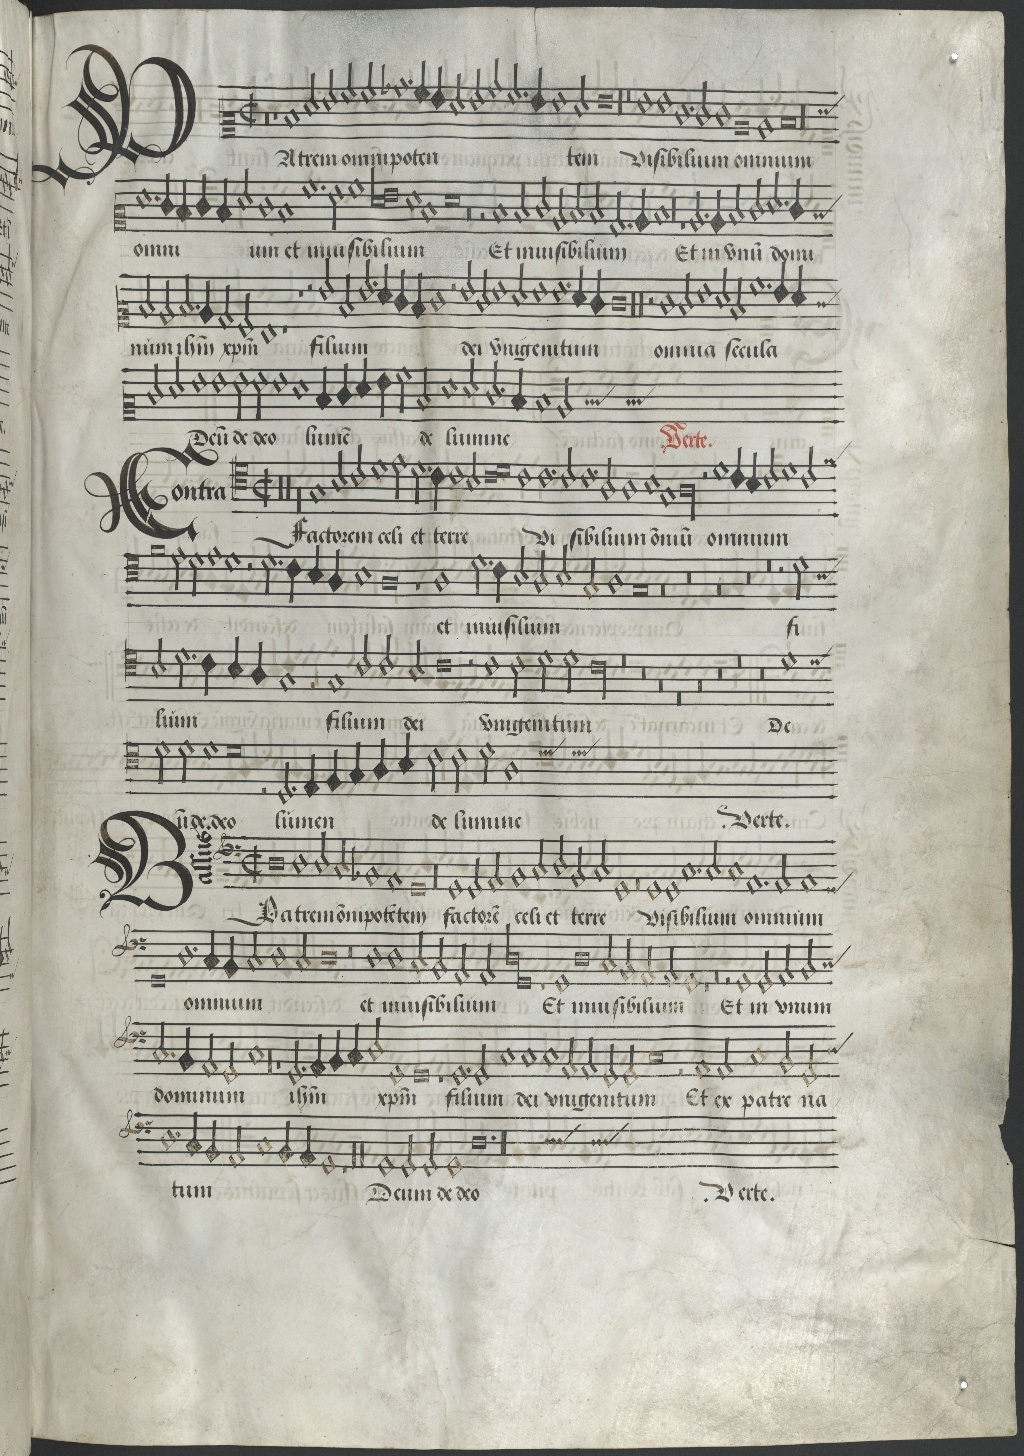 PAtrem omnipoten tem Visibilium omnium
omni um et inuisibilium Et inuisibilium Et in vnū domi
num ihm̄ xpm̄ filium dei vnigenitum omnia secula
Deū de deo lumē de lumine Verte.
Contra
Factorem celi et terre Vi sibilium ōniū omnium
et inuisilium fi
lium filium dei vnigenitum De
ū de deo lumen de lumine Verte.
Bassus
Patrem ōmpotētem factorē celi et terre Visibilium omnium
omnium et inuisibilium Et inuisibilium Et in vnum
dominum ihm̄ xpm̄ filium dei vnigenitum Et ex patre na
tum Deum de deo Verte.